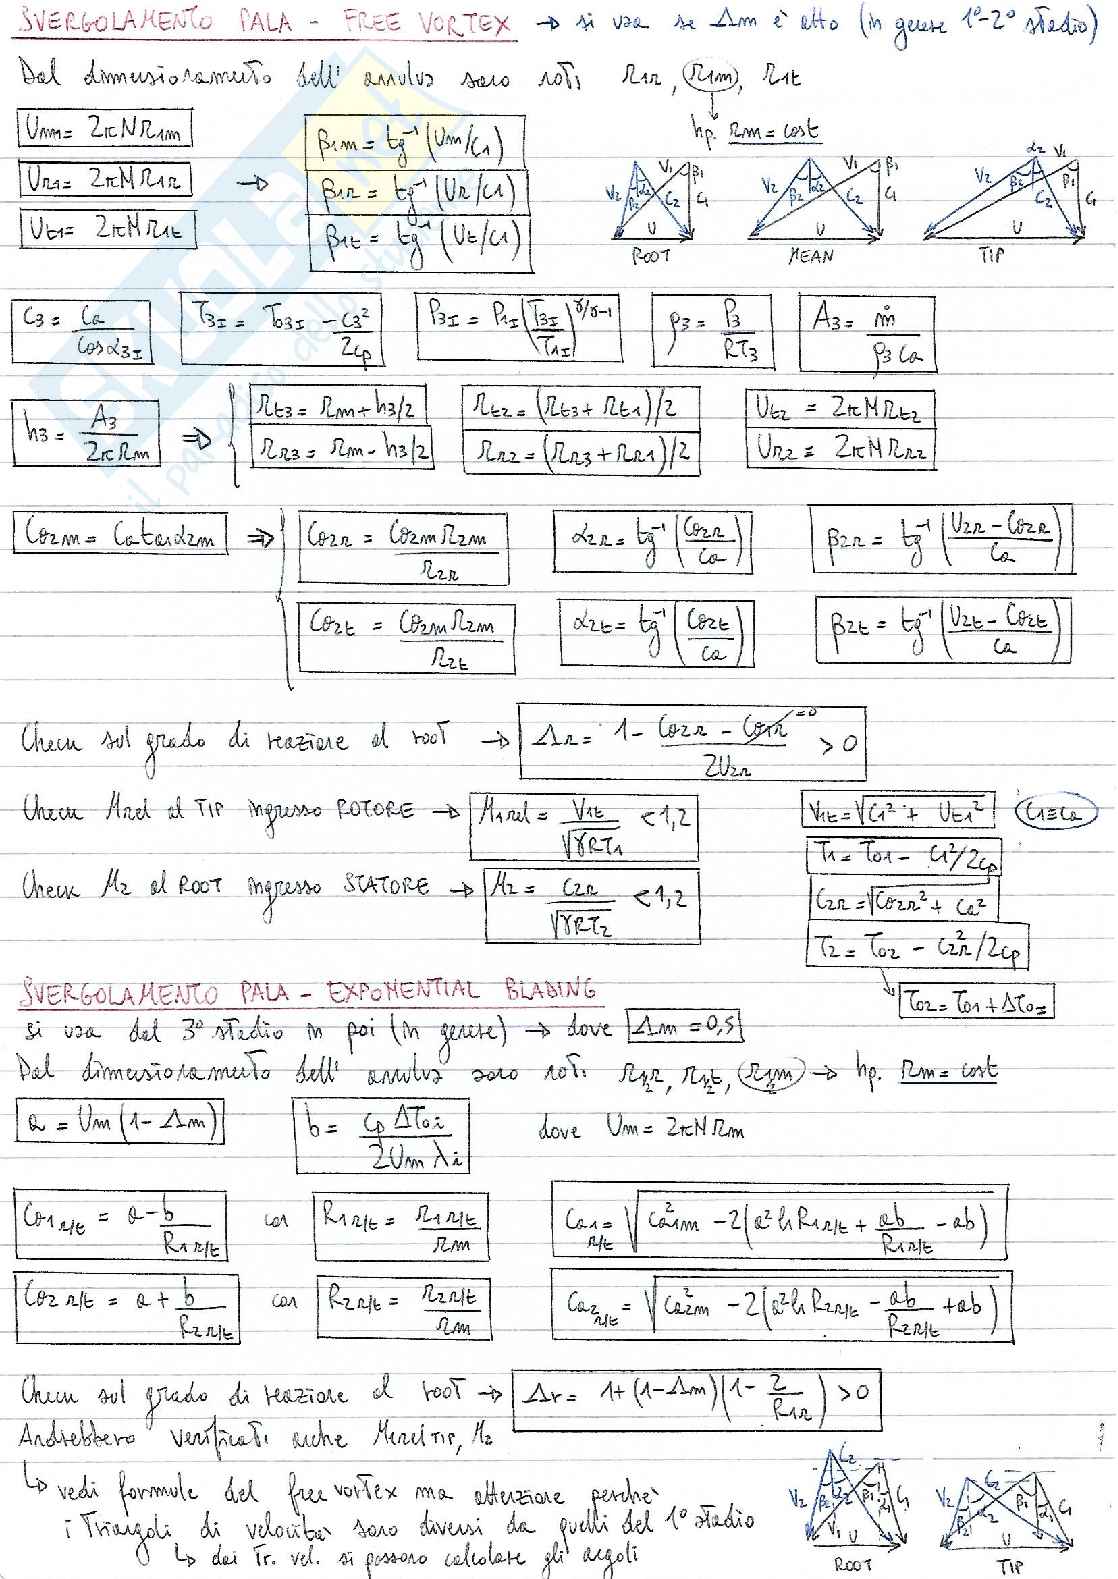 SVERGOLAMENTO PALA - FREE VORTEX → si usa se Λm è alto (in genere 1°-2° stadio)
Dal dimensionamento dell' annulus sono noti r1r, r1m, r1t
hp. rm = cost
Um1 = 2πN r1m
Ur1 = 2πN r1r
Ut1 = 2πN r1t
→
β1m = tg⁻¹ (Um/C1)
β1r = tg⁻¹ (Ur/C1)
β1t = tg⁻¹ (Ut/C1)
V2 β2 α2 C2 V1 β1 C1 U
ROOT
V2 β2 α2 C2 V1 β1 C1 U
MEAN
V2 β2 α2 C2 V1 β1 C1 U
TIP
C3 = Ca / cosα3I
T3I = T03I - C3² / 2cp
P3I = P1I (T3I / T1I)^γ/γ-1
ρ3 = P3 / RT3
A3 = ṁ / ρ3 Ca
h3 = A3 / 2π rm ⇒
rt3 = rm + h3/2
rr3 = rm - h3/2
rt2 = (rt3 + rt1)/2
rr2 = (rr3 + rr1)/2
Ut2 = 2πN rt2
Ur2 = 2πN rr2
Cθ2m = Ca tanα2m ⇒
Cθ2r = Cθ2m r2m / r2r
α2r = tg⁻¹ (Cθ2r / Ca)
β2r = tg⁻¹ (U2r - Cθ2r / Ca)
Cθ2t = Cθ2m r2m / r2t
α2t = tg⁻¹ (Cθ2t / Ca)
β2t = tg⁻¹ (U2t - Cθ2t / Ca)
Check sul grado di reazione al root → Λr = 1 - Cθ2r - Cθ1r =0 / 2U2r > 0
Check Mrel al TIP ingresso ROTORE → M1rel = V1t / √γRT1 < 1,2
V1t = √C1² + Ut1² C1≡Ca
T1 = T01 - C1²/2cp
Check M2 al ROOT ingresso STATORE → M2 = C2r / √γRT2 < 1,2
C2r = √Cθ2r² + Ca²
T2 = T02 - C2r²/2cp
T02 = T01 + ΔT0I
SVERGOLAMENTO PALA - EXPONENTIAL BLADING
si usa dal 3° stadio in poi (in genere) → dove Λm = 0,5
Dal dimensionamento dell' annulus sono noti r1/2r, r1/2t, r1/2m → hp. rm = cost
a = Um (1 - Λm)
b = cp ΔT0i / 2Um λi
dove Um = 2πN rm
Cθ1 r/t = a - b / R1 r/t con R1 r/t = r1 r/t / rm
Ca1 r/t = √Ca1m² - 2(a² ln R1 r/t + ab / R1 r/t - ab)
Cθ2 r/t = a + b / R2 r/t con R2 r/t = r2 r/t / rm
Ca2 r/t = √Ca2m² - 2(a² ln R2 r/t - ab / R2 r/t + ab)
Check sul grado di reazione al root → Λr = 1 + (1 - Λm)(1 - 2 / R1r) > 0
Andrebbero verificati anche M1rel TIP, M2
↳ vedi formule del free vortex ma attenzione perchè
i triangoli di velocità sono diversi da quelli del 1° stadio
↳ dai Tr. vel. si possono calcolare gli angoli
V2 β2 α2 C2 V1 β1 α1 C1 U
ROOT
V2 β2 α2 C2 β1 α1 C1 U
TIP